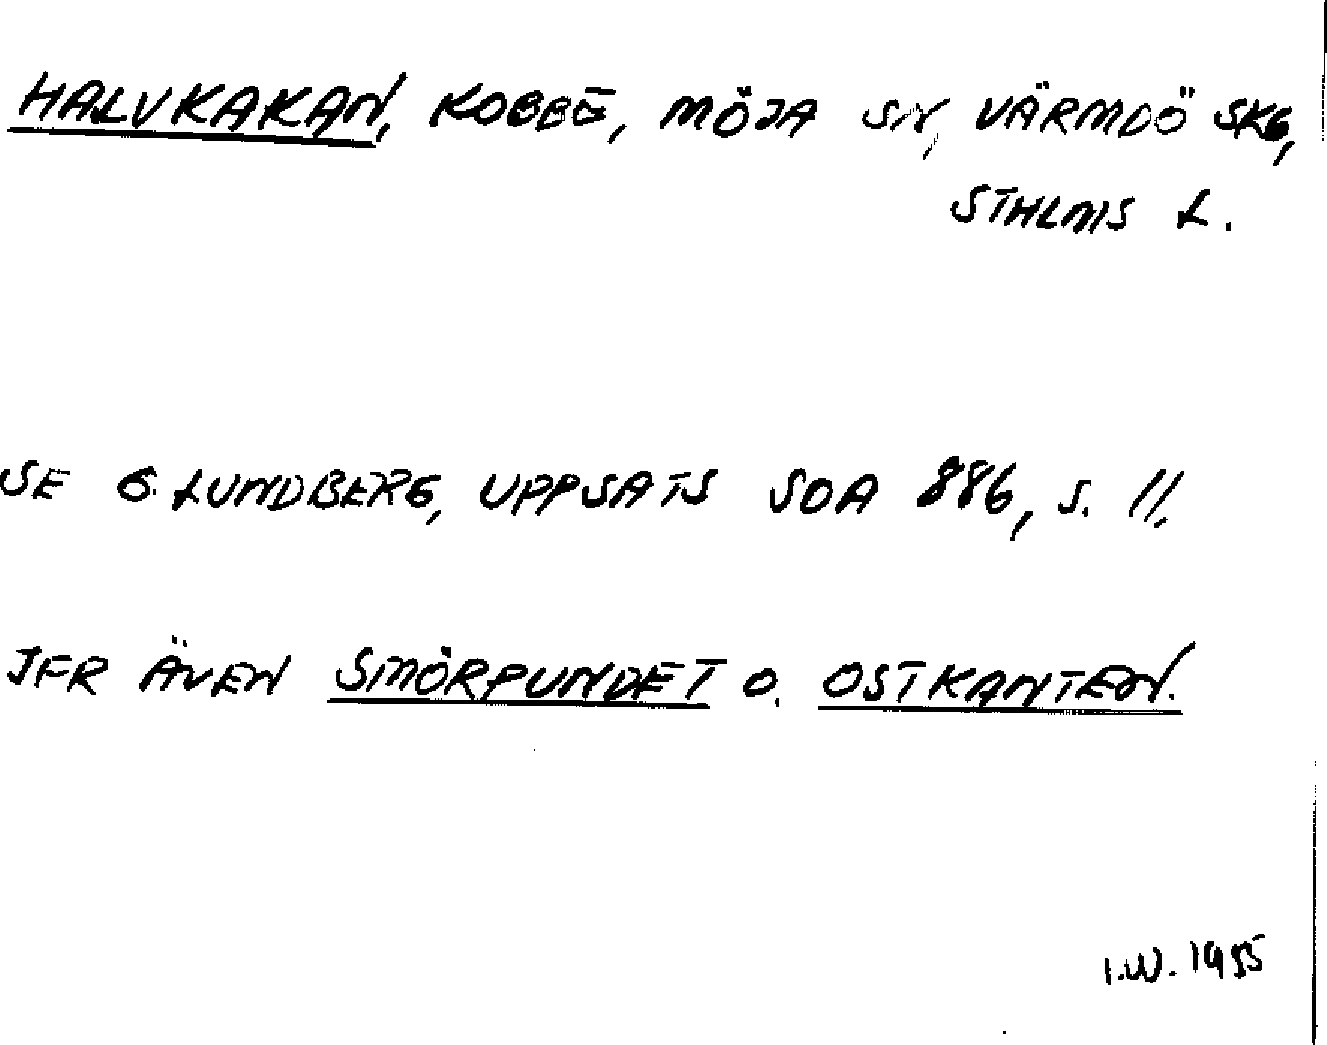 HALVKAKAN, KOBBE, MÖJA SN, VÄRMDÖ SKG,
STHLMS L.
SE G. LUNDBERG, UPPSATS SOA 886, S. 11.
JFR ÄVEN SMÖRPUNDET O. OSTKANTEN.
I.W. 1955